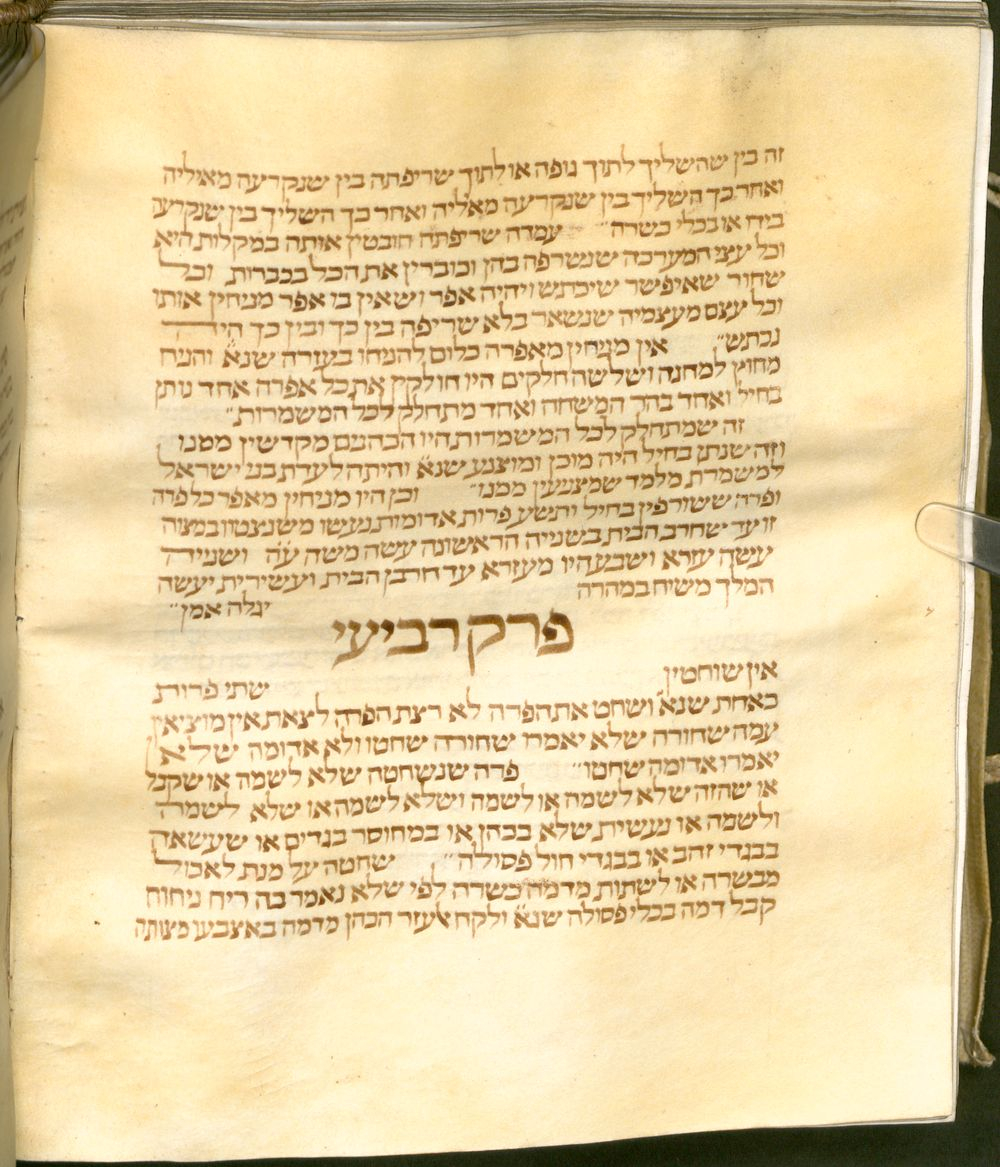 זה בין שהשליך לתוך גופה או לתוך שריפתה בין שנקרעה מאיליה
ואחר כך השליך בין שנקרעה מאליה ואחר כך השליך בין שנקרעה
ביד או בכלי כשרה״ עמדה שריפתה חובטין אותה במקלות היא
וכל עצי המערכה שנשרפה בהן וכוברין את הכל בכברות וכל
שחור שאיפשר שיכתש ויהיה אפר ושאין בו אפר מניחין אותו
וכל עצם מעצמיה שנשאר בלא שריפה בין כך ובין כך היה
נכתש״ אין מניחין מאפרה כלום להניחו בעזרה שנא׳ והניח
מחוץ למחנה ושלשה חלקים היו חולקין את כל אפרה אחד נותן
בחיל ואחד בהר המשחה ואחד מתחלק לכל המשמרות״
זה שמתחלק לכל המשמרות היו הכהנים מקדשין ממנו
וזה שנתן בחיל היה מוכן ומוצנע שנא׳ והיתה לעדת בני ישראל
למשמרת מלמד שמצניעין ממנו״ וכן היו מניחין מאפר כל פרה
ופרה ששורפין בחיל ותשע פרות אדומות נעשו משנצטוו במצוה
זו עד שחרב הבית בשנייה הראשונה עשה משה ע׳ה׳ ושנייה
עשה עזרא ושבע היו מעזרא עד חרבן הבית ועשירית יעשה
המלך משיח במהרה
יגלה אמן״
פרק רביעי
אין שוחטין
שתי פרות
כאחת שנא׳ ושחט את הפרה לא רצת הפרה לצאת אין מוציאין
עמה שחורה שלא יאמרו שחורה שחטו ולא אדומה שלא
יאמרו אדומה שחטו״ פרה שנשחטה שלא לשמה או שקבל
או שהזה שלא לשמה או לשמה ושלא לשמה או שלא לשמה
ולשמה או נעשית שלא בכהן או במחוסר בגדים או שעשאה
בבגדי זהב או בבגדי חול פסולה״ שחטה על מנת לאכול
מבשרה או לשתות מדמה כשרה לפי שלא נאמר בה ריח ניחוח
קבל דמה בכלי פסולה שנא׳ ולקח אלעזר הכהן מדמה באצבעו מצותה